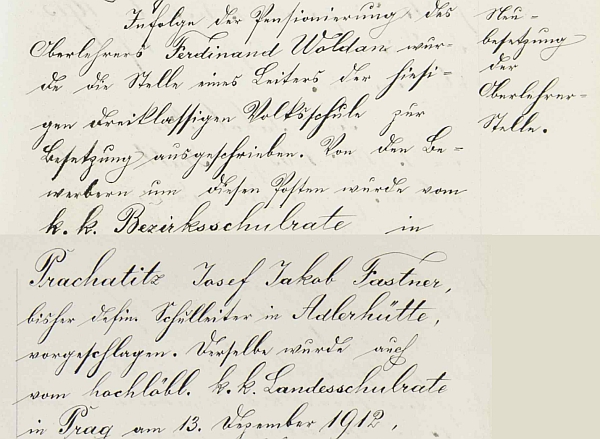 Infolge der Pensionierung des
Oberlehrers Ferdinand Woldan wur-
de die Stelle eines Leiters der hiesi-
gen dreiklassigen Volksschule zur
Besetzung ausgeschrieben. Von den Be-
werbern um diesen Posten wurde vom
k. k. Bezirksschulrate in
Prachatitz Josef Jakob Fastner,
bisher defin. Schulleiter in Adlerhütte,
vorgeschlagen. Derselbe wurde auch
vom hochlöbl. k. k. Landesschulrate
in Prag am 13. Dezember 1912,
Neu-
besetzung
der
Oberlehrer-
Stelle.